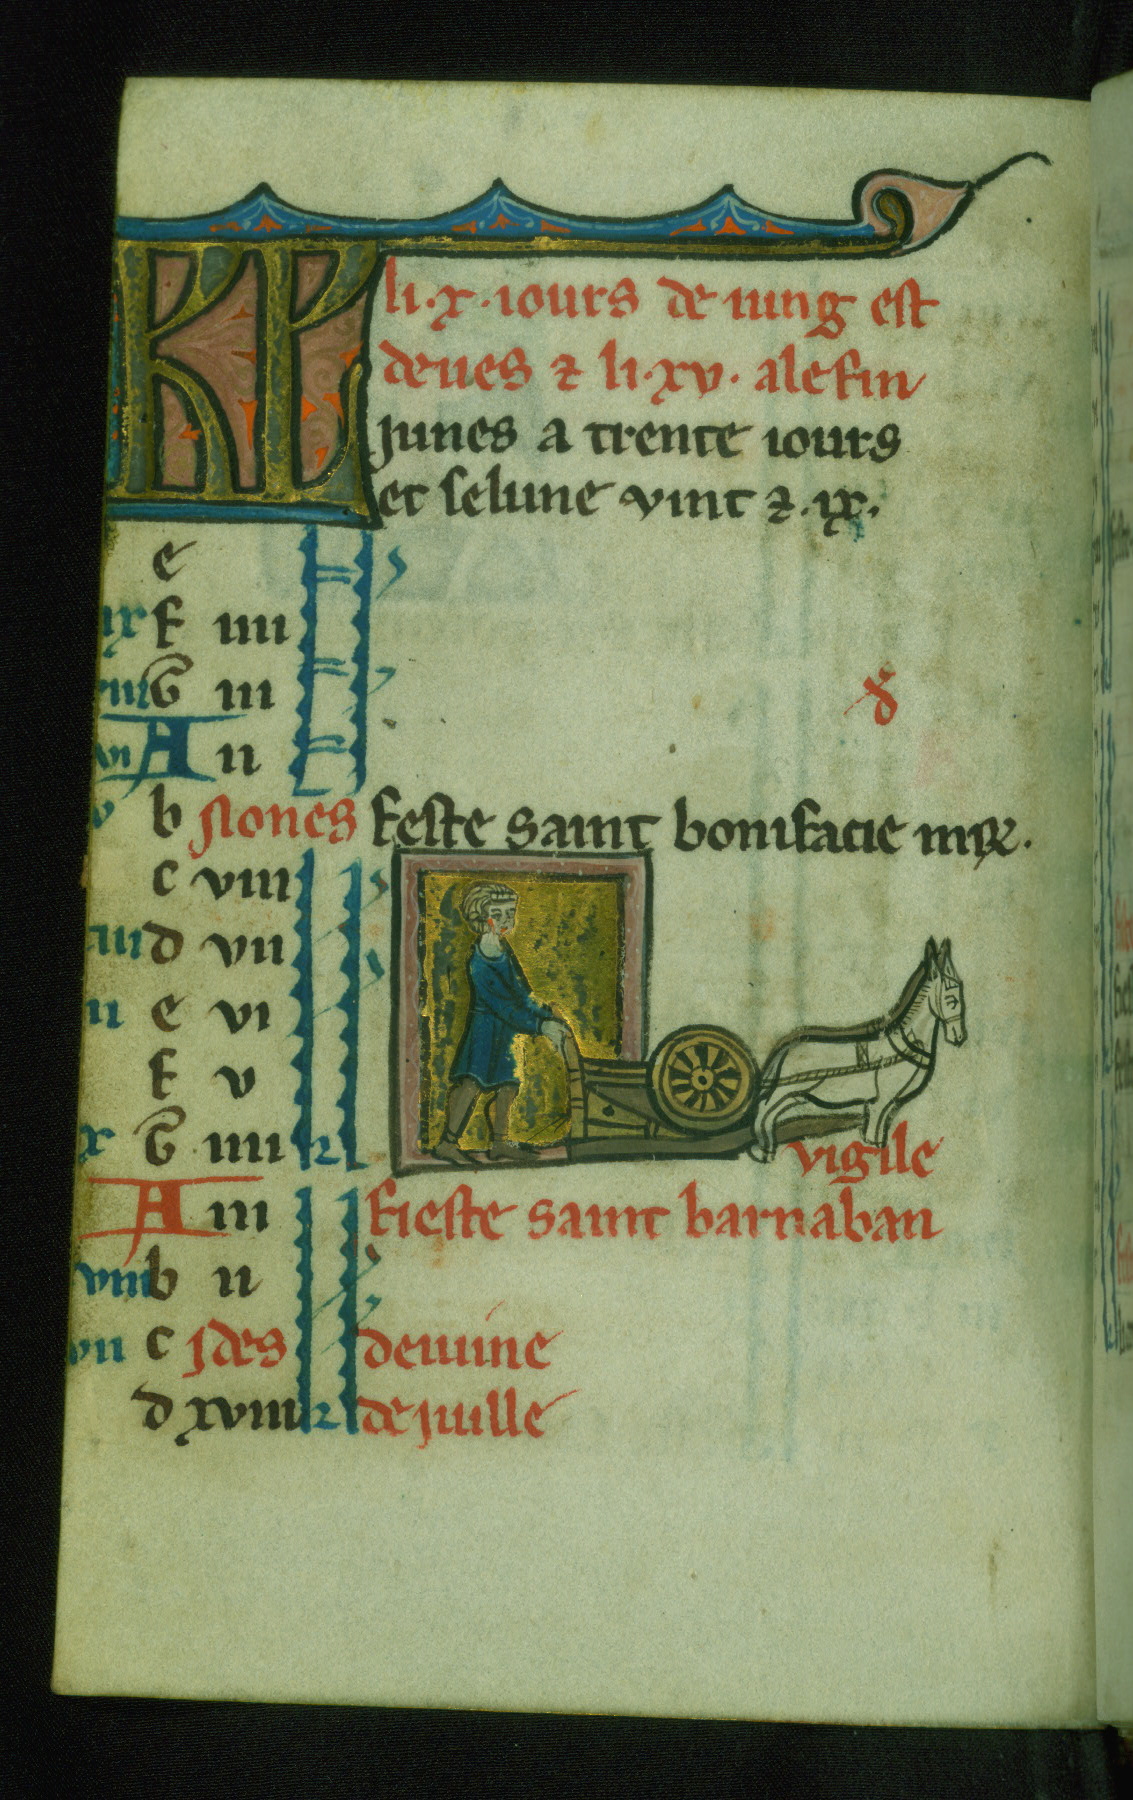 KL li.x.iours de iung est
deues ⁊ li.xv. alefin
junes a trente iours
et selune vint ⁊.ix.
e
ix f iiii
G iii
d
vi A ii
v b Nones feste saint bonifacie
c viii
d vii
ii e vi
f v
x G iiii vigile
A iii fieste saint barnaban
viii b ii
vii c jdes deiuine
d xviii dejuille